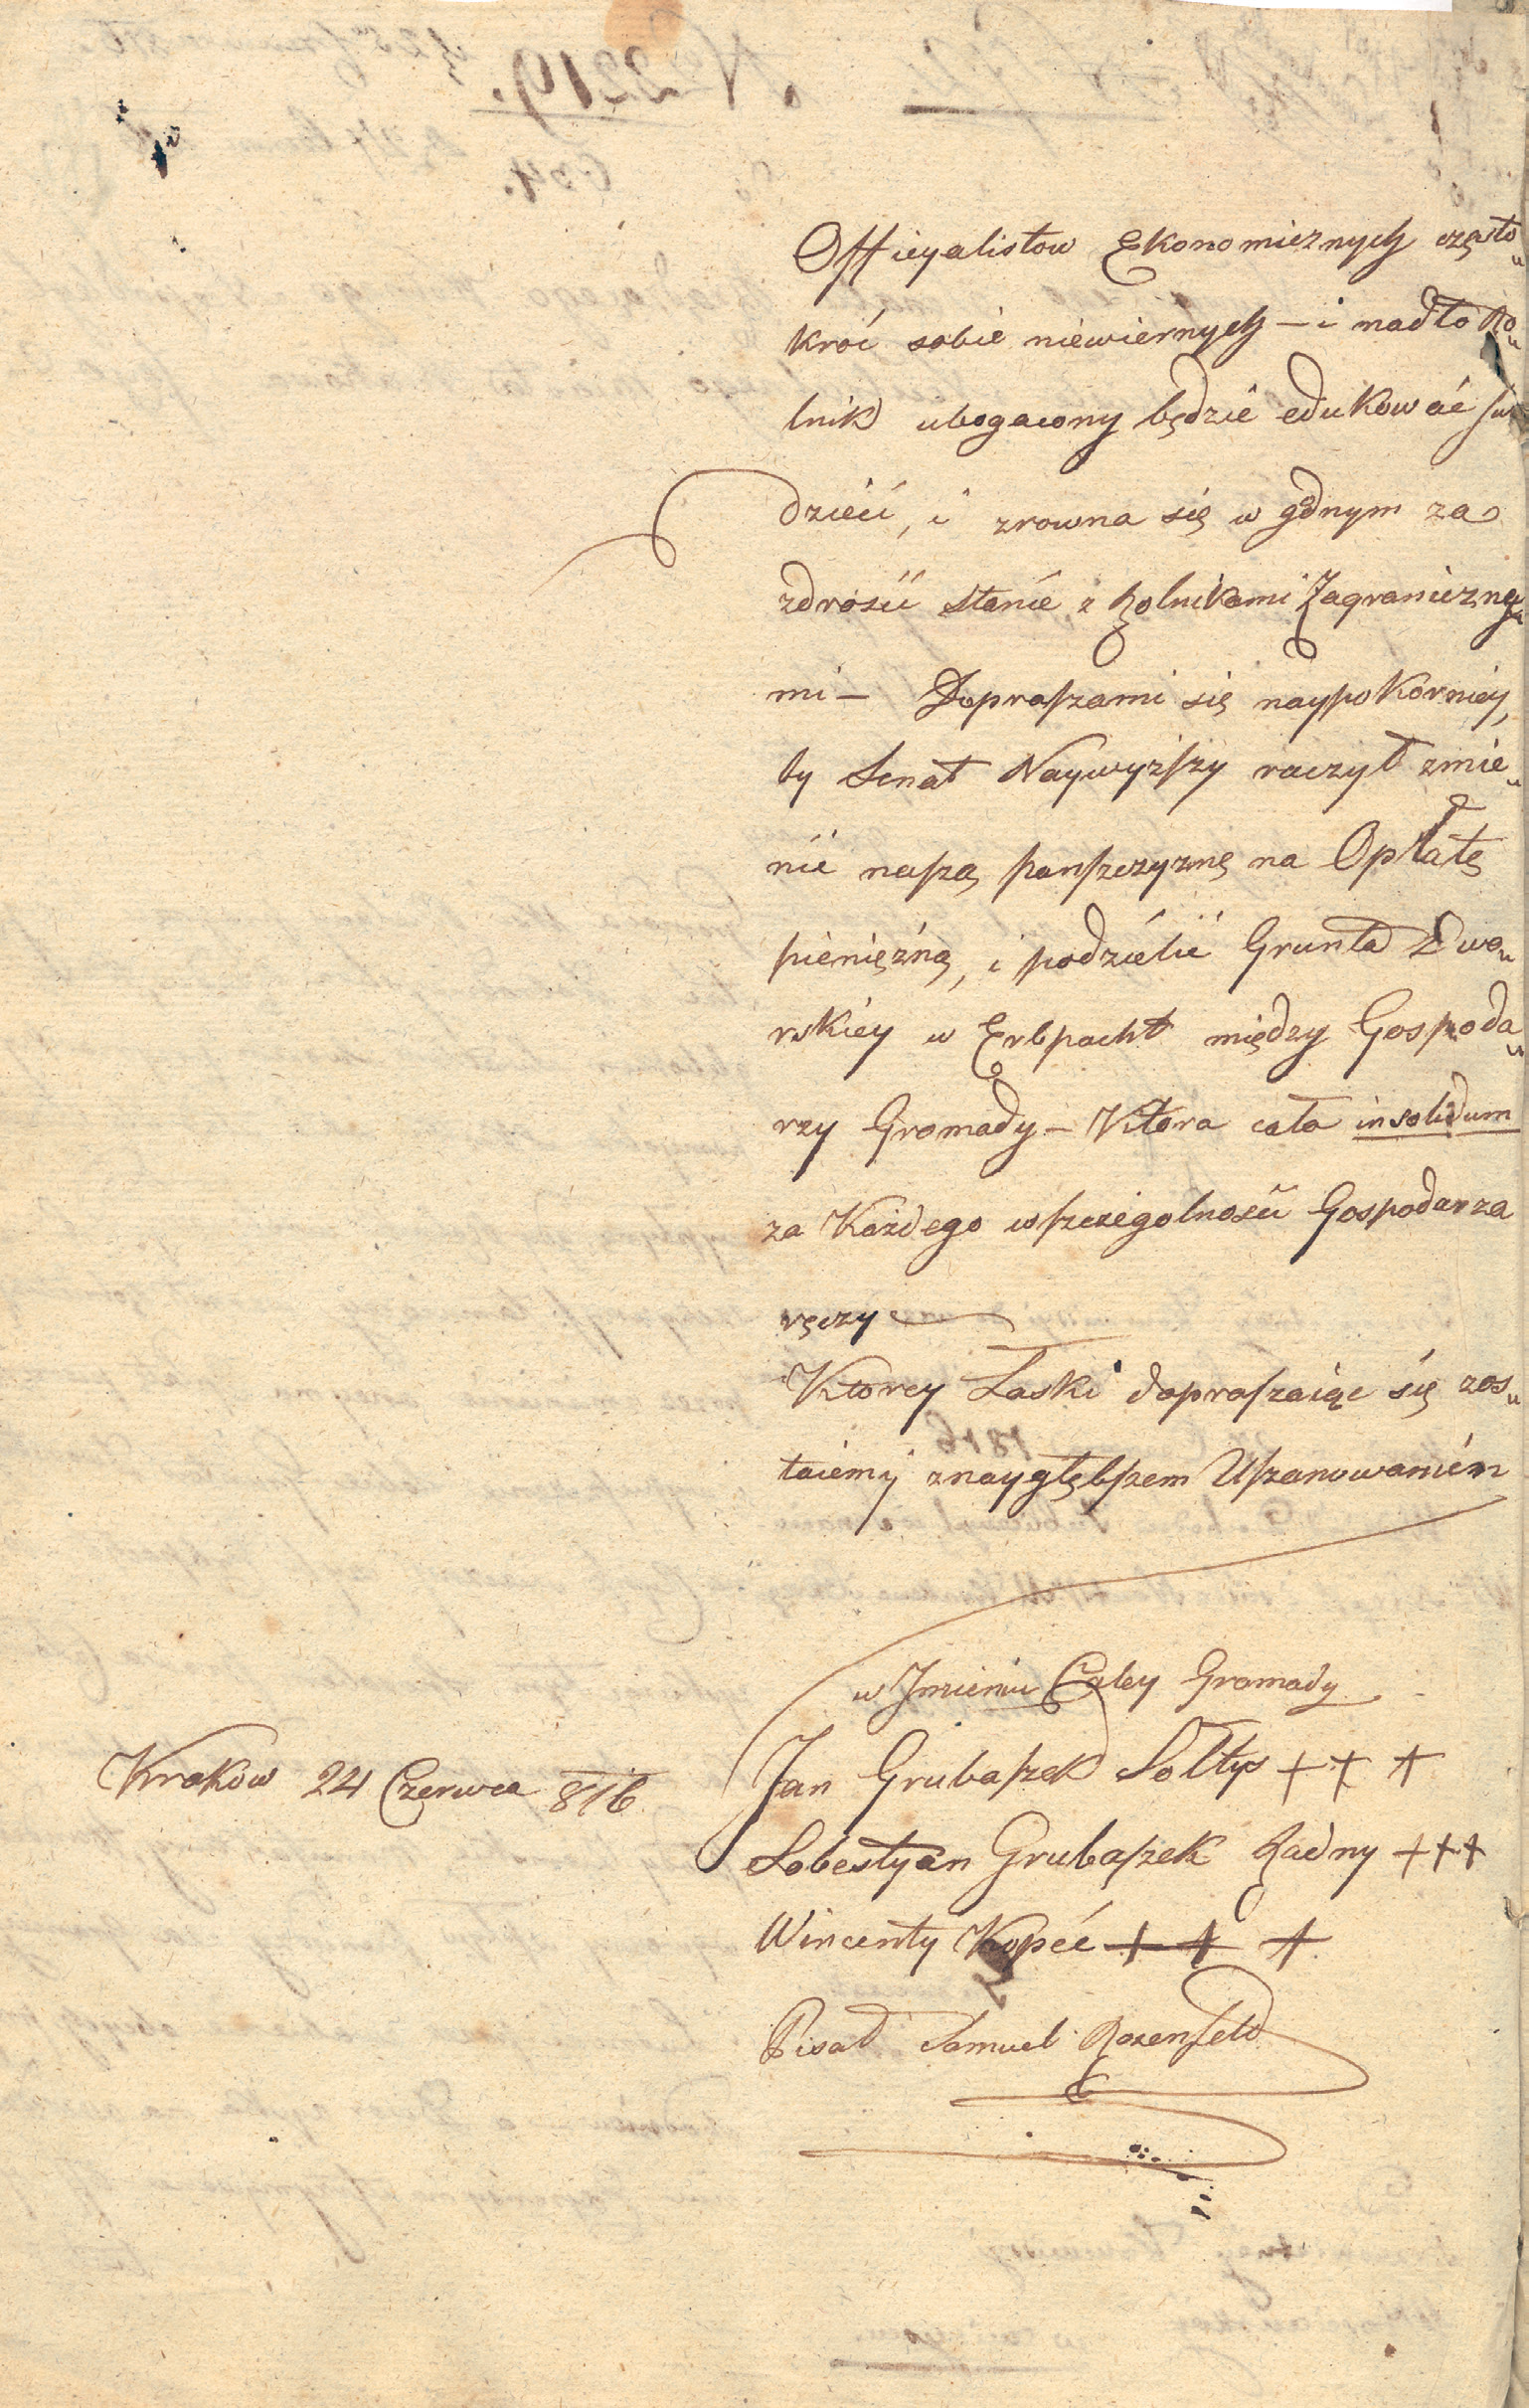 Officyalistow Ekonomicznych często„
kroć sobie niewiernych – i nadto Ro„
lnik ubogacony będzie edukować swe
dzieci, i zrowna się w gdnym za
zdrości stanie z Rolnikami Zagraniczny„
mi – Dopraszami się naypokorniey,
by Senat Naywyższy raczył zmie„
nić naszą panszczyznę na Opłatę
pieniężną, i podzielić Grunta Dwo„
rskiey w Erbpacht między Gospoda„
rzy Gromady – Ktora cała insolidum
za Każdego wszczegolności Gospodarza
ręczy
Ktorey Łaski dopraszaiąc się zos„
taiemy znaygłębszem Uszanowaniem
w Jmieniu Całey Gromady
Kraków 24 Czerwca 816
Jan Grubaszek Sołtys + + +
Sobestyan Grubaszek Radny + + +
Wincenty Kopeć + + +
Pisał Samuel Rozenfeld